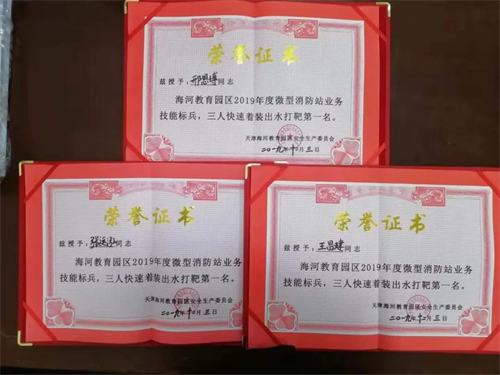 荣誉证书
兹授予:邢恩博同志
海河教育园区2019年度微型消防站业务
技能标兵,三人快速着装出水打靶第一名。
天津海河教育园区安全生产委员会
二〇一九年十二月三日
荣誉证书
兹授予:张 同志
海河教育园区2019年度微型消防站业务
技能标兵,三人快速着装出水打靶第一名。
天津海河教育园区安全生产委员会
二〇一九年十二月三日
荣誉证书
兹授予:王昌建同志
海河教育园区2019年度微型消防站业务
技能标兵,三人快速着装出水打靶第一名。
天津海河教育园区安全生产委员会
二〇一九年十二月三日